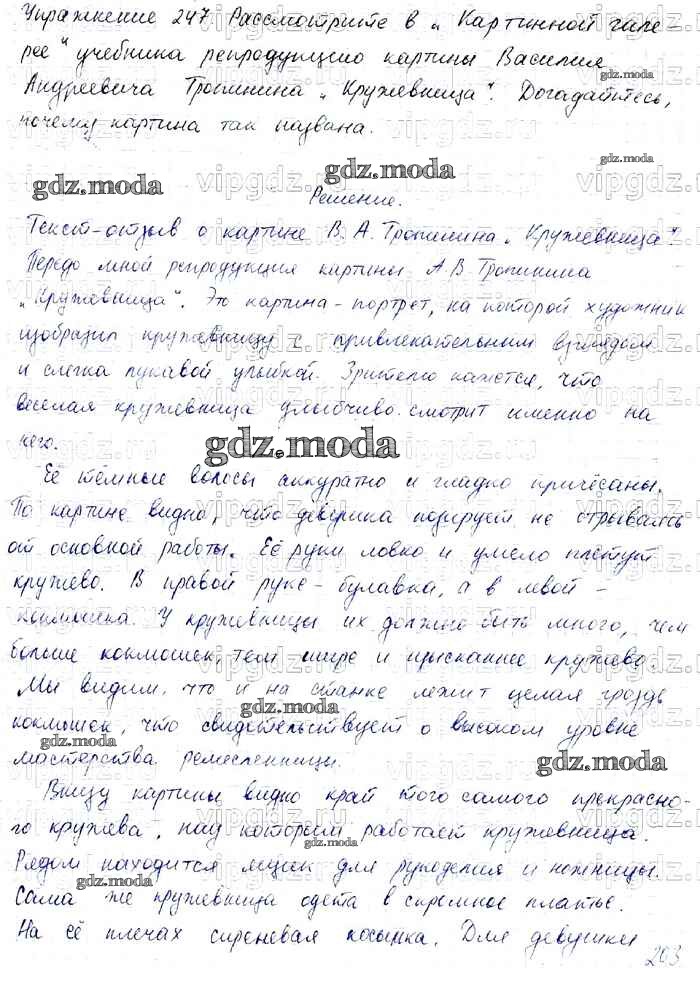 Упражнение 247. Рассмотрите в „Картинной гале
рее" учебника репродукцию картины Василия
Андреевича Тропинина „Кружевница". Догадайтесь,
почему картина так названа.
gdz.moda
Решение.
Текст-отзыв о картине В. А. Тропинина „Кружевница".
Передо мной репродукция картины А. В. Тропинина
„Кружевница". Это картина - портрет, на которой художник
изобразил кружевницу с привлекательным взглядом
и слегка лукавой улыбкой. Зрителю кажется, что
веселая кружевница улыбчиво смотрит именно на
него.
gdz.moda
Её тёмные волосы аккуратно и гладко причёсаны.
По картине видно, что девушка позирует не отрываясь
от основной работы. Её руки ловко и умело плетут
кружево. В правой руке - булавка, а в левой -
коклюшка. У кружевницы их должно быть много, чем
больше коклюшек, тем шире и изысканнее кружево.
Мы видим, что и на станке лежит целая гроздь
коклюшек, что свидетельствует о высоком уровне
мастерства ремесленницы.
gdz.moda
Внизу картины видно край того самого прекрасно-
го кружева, над которым работает кружевница.
Рядом находится ящик для рукоделия и ножницы.
Сама же кружевница одета в скромное платье.
На её плечах сиреневая косынка. Для девушки
203